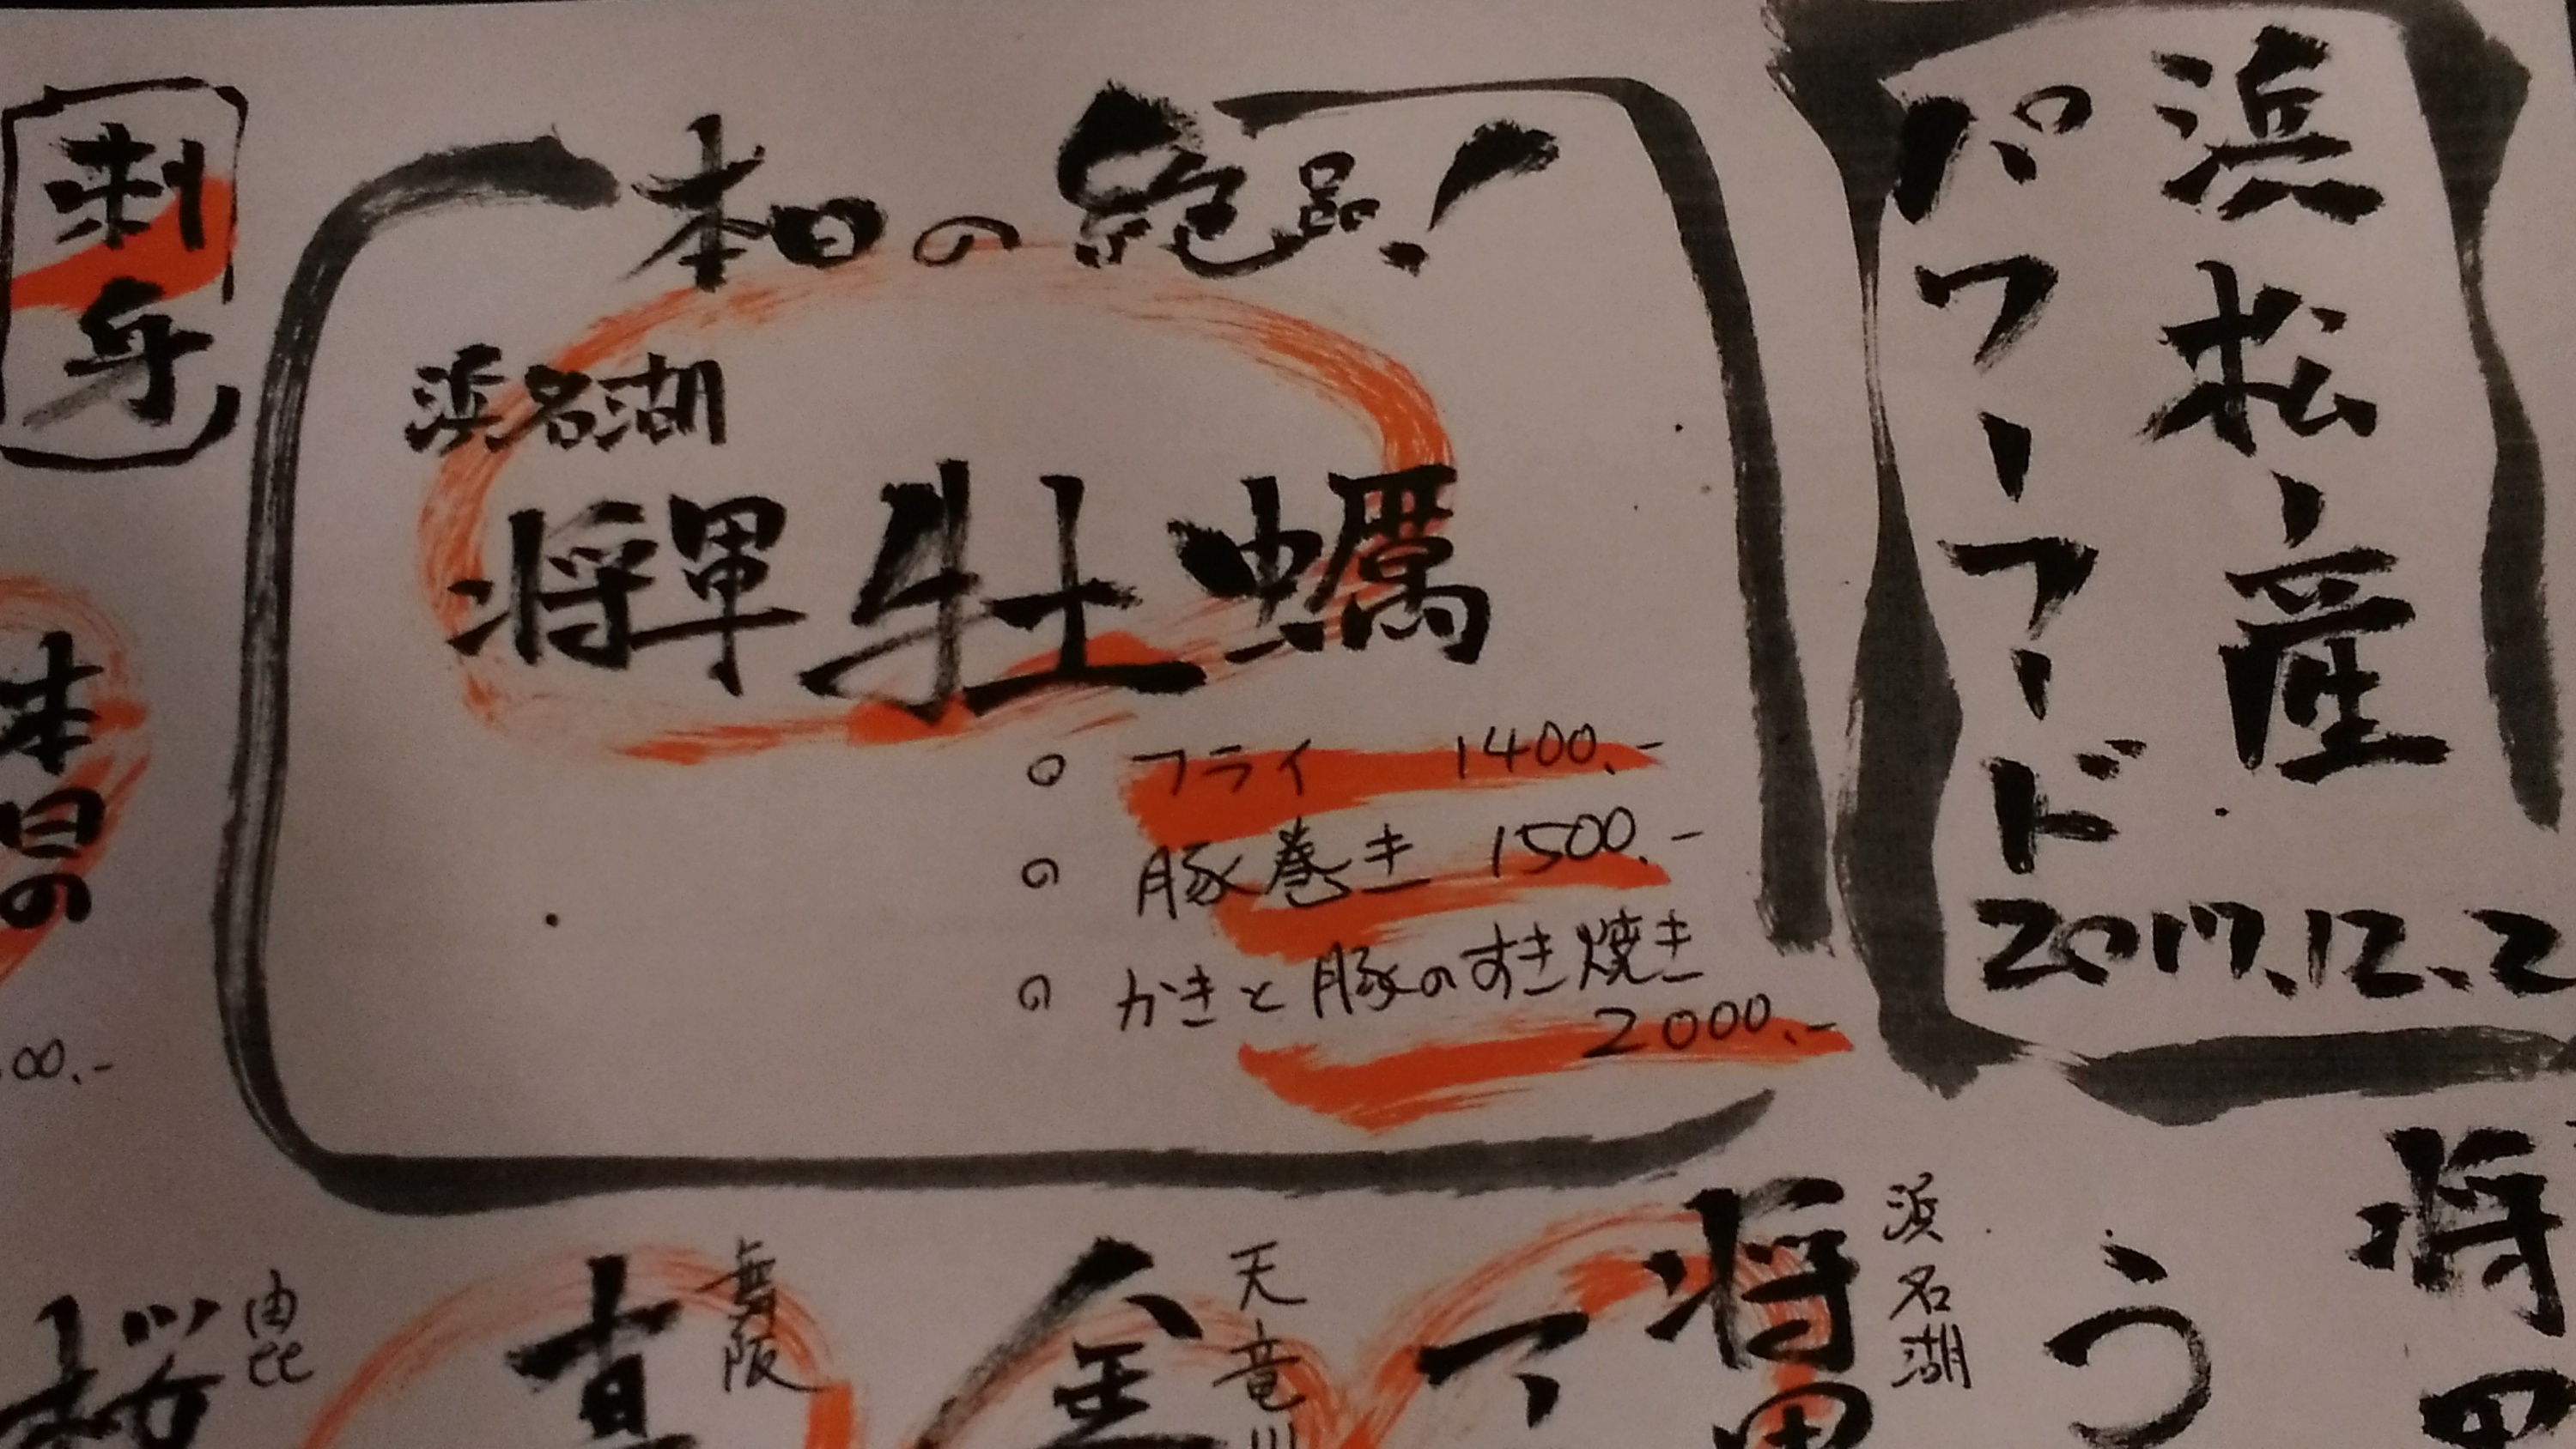 浜松産
パワーフード
2017.12.2
本日の絶品!
浜名湖
将軍牡蠣
○ フライ 1400.-
○ 豚巻き 1500.-
○ かきと豚のすき焼き
2000.-
刺身
本日の
00.-
将軍
う
浜名湖
将軍
マ
天竜川
金
舞阪
真
由比
桜